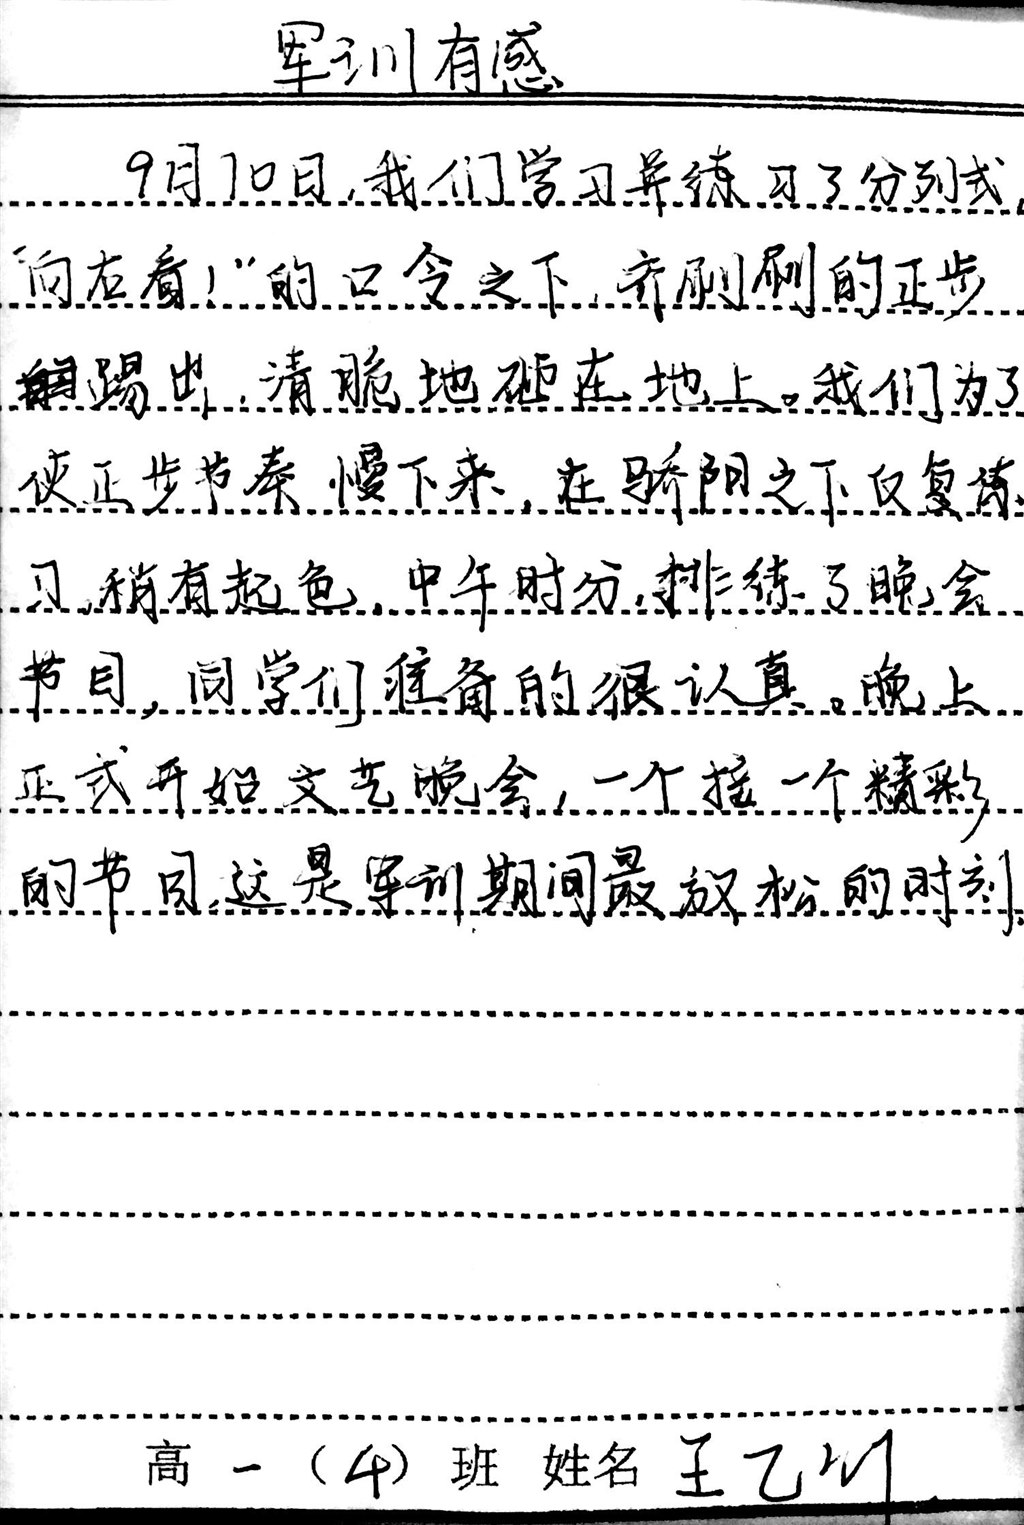 军训有感
9月10日,我们学习并练习了分列式,
"向右看!"的口令之下,齐刷刷的正步
踢出,清脆地砸在地上。我们为了
使正步节奏慢下来,在骄阳之下反复练
习,稍有起色,中午时分,排练了晚会
节目,同学们准备的很认真。晚上
正式开始文艺晚会,一个接一个精彩
的节目,这是军训期间最放松的时刻.
高一(4)班 姓名 王乙川